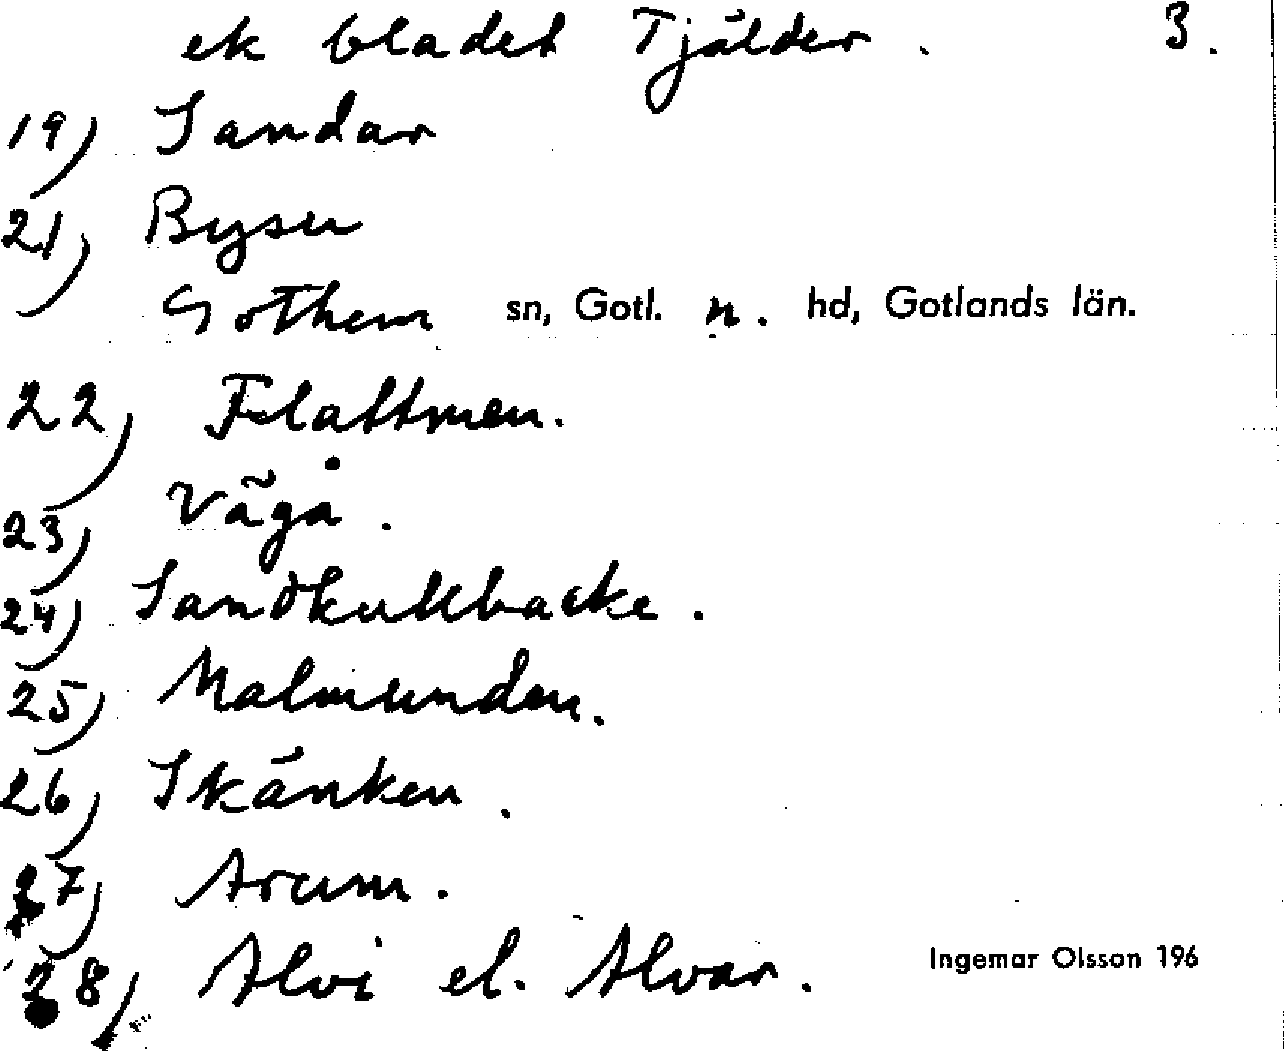 ek bladet Tjälder. 3.
19) Sandar
21) Byser
Gothem sn, Gotl. n. hd, Gotlands län.
22) Flattmen.
23) Vägå.
24) Sandkullbacke.
25) Malmunden.
26) Skänken.
27) Arum.
28) Alvi el. Alvar.
Ingemar Olsson 196